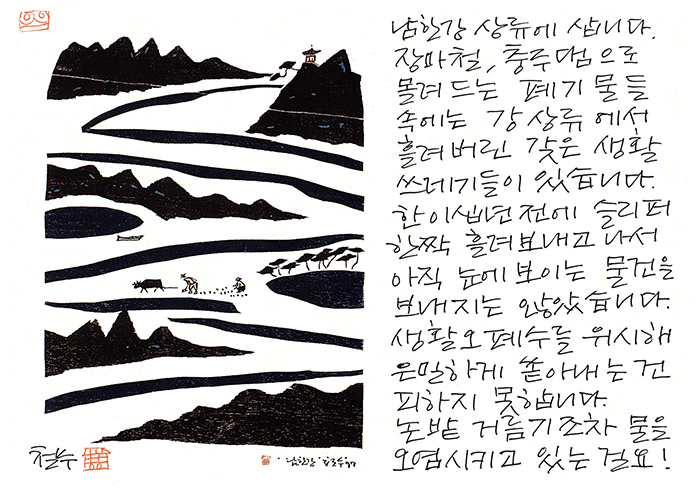 남한강 상류에 삽니다.
장마철, 충주댐으로
몰려드는 폐기물들
속에는 강 상류에서
흘려버린 갖은 생활
쓰레기들이 있습니다.
한 이십년 전에 슬리퍼
한짝 흘려보내고 나서
아직 눈에 보이는 물건을
보내지는 않았습니다.
생활오폐수를 위시해
은밀하게 쏟아내는 건
피하지 못합니다.
논밭 거름기조차 물을
오염시키고 있는 걸요!
철수
남한강